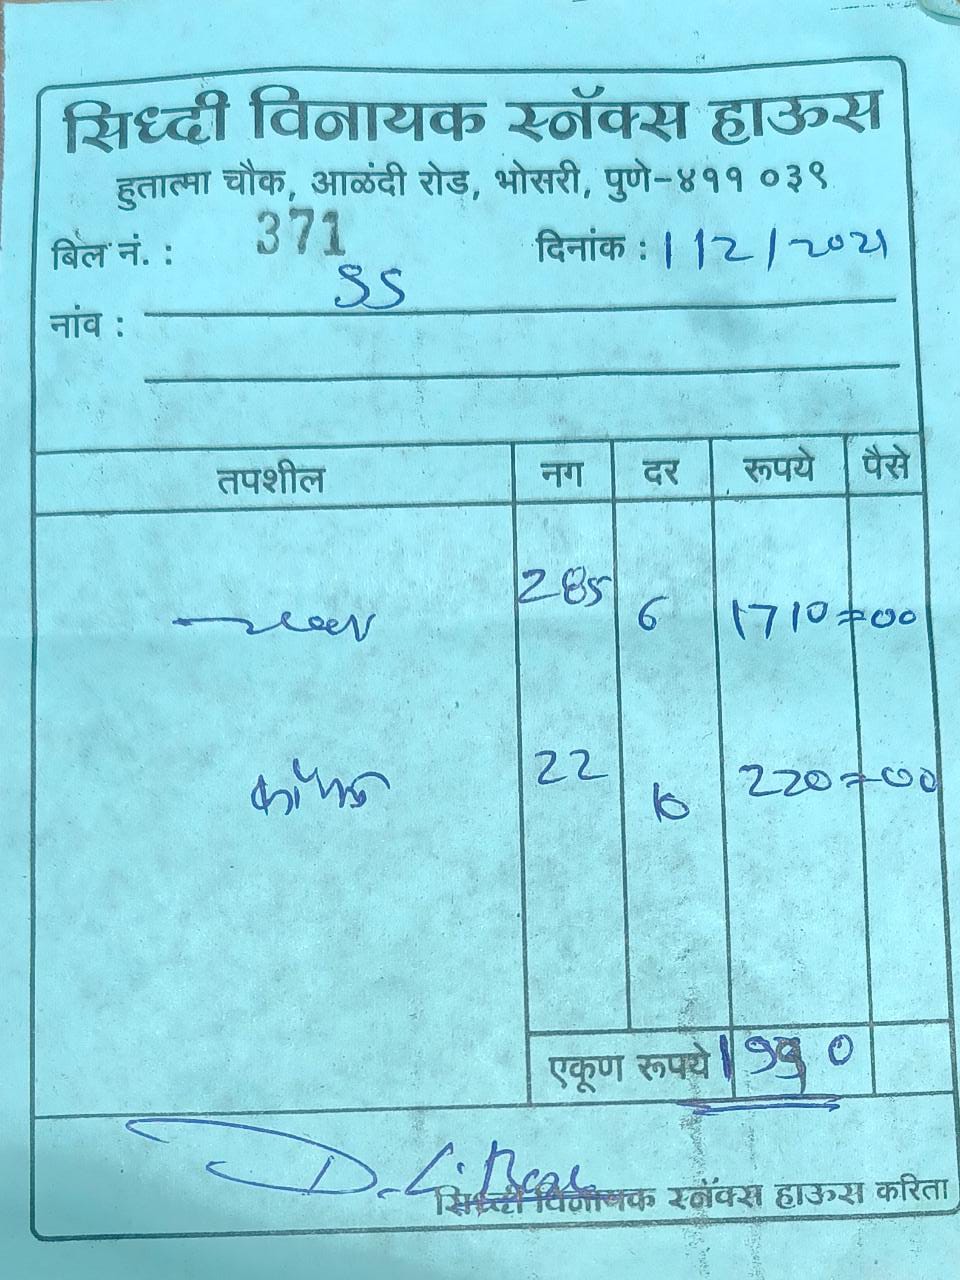 सिध्दी विनायक स्नॅक्स हाऊस
हुतात्मा चौक, आळंदी रोड, भोसरी, पुणे-४११ ०३९
बिल नं. : 371 दिनांक : 1/12/2021
SS
नांव :
तपशील नग दर रूपये पैसे
285 6 1710=00
कॉफी 22 10 220=00
एकूण रूपये
सिध्दी विनायक स्नॅक्स हाऊस करिता